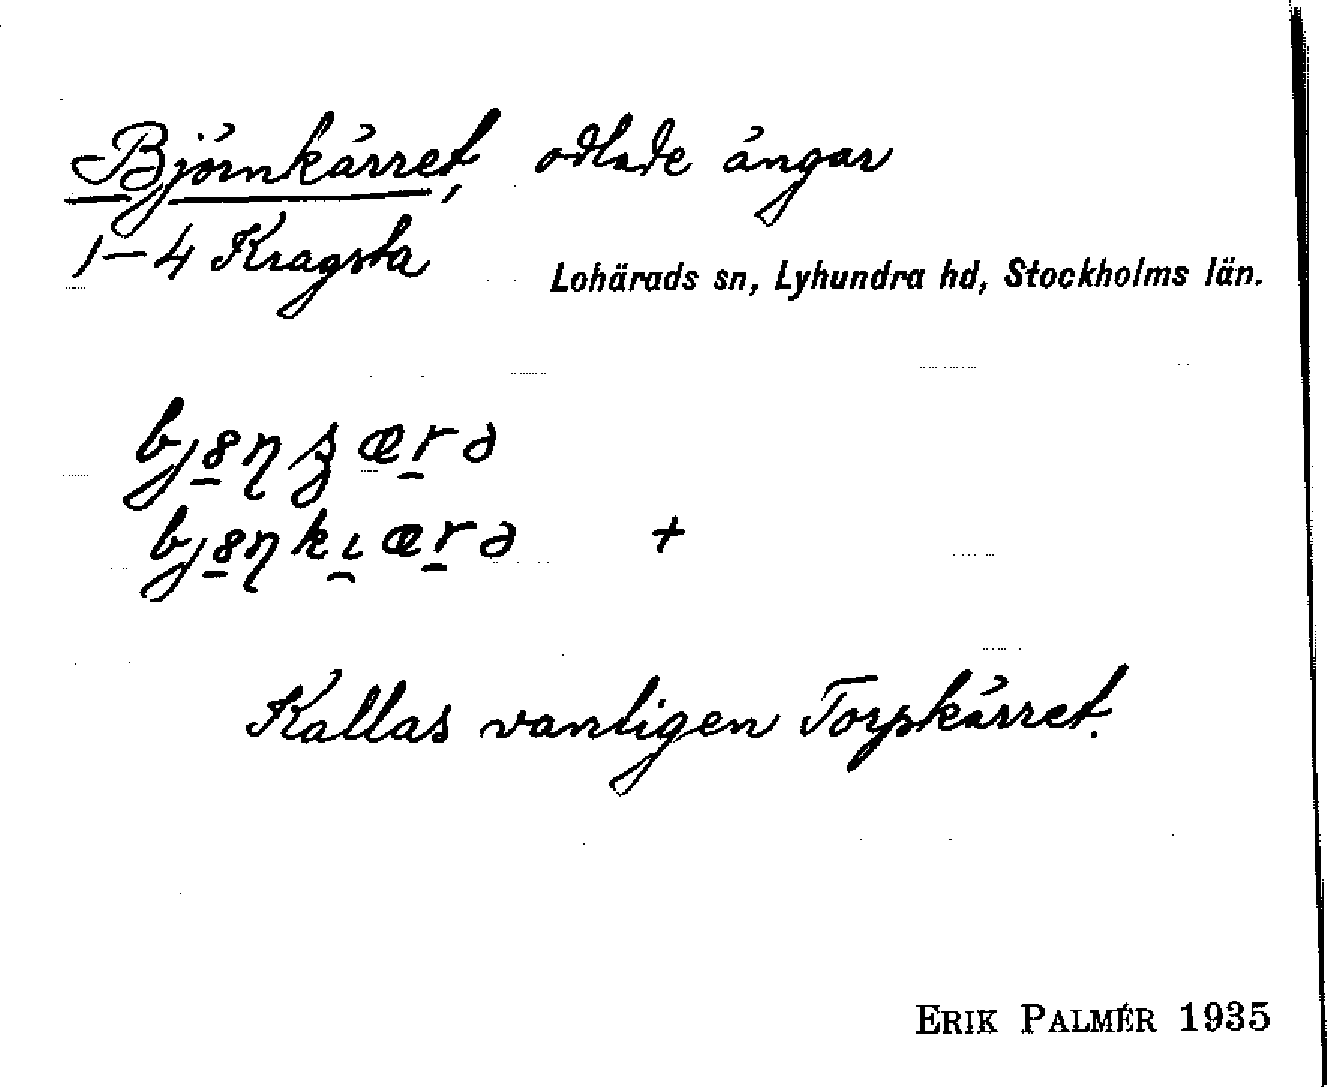 Björnkärret, odlade ängar
1-4 Kragsta
Lohärads sn, Lyhundra hd, Stockholms län.
Kallas vanligen Torpkärret.
ERIK PALMÉR 1935